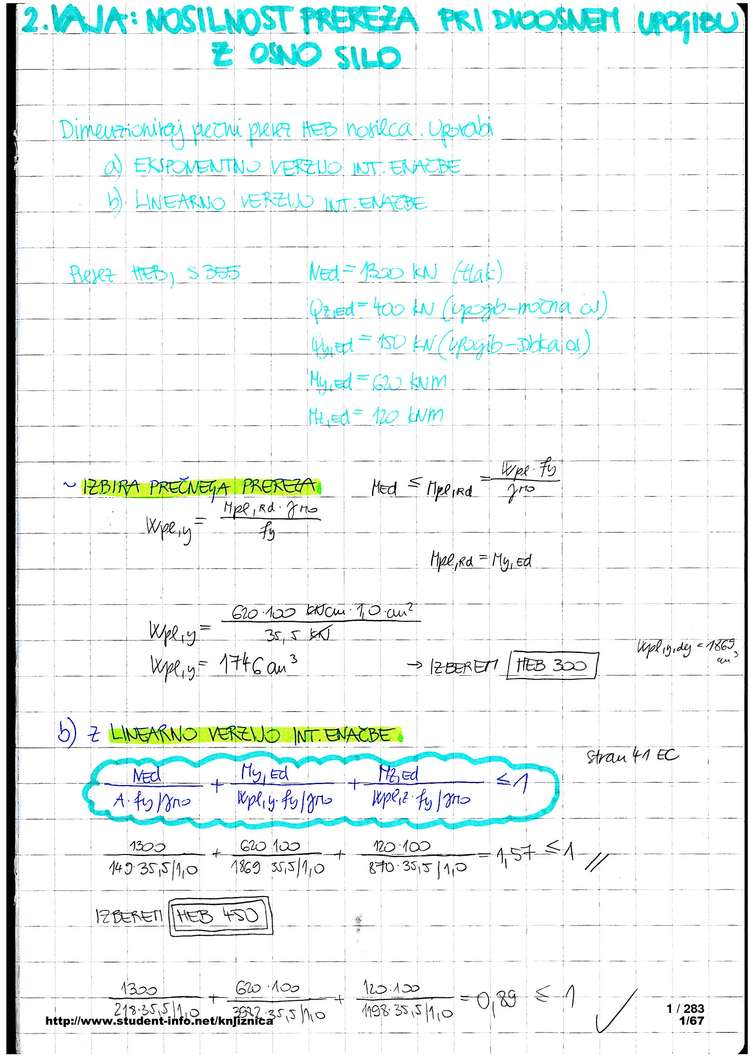 2. VAJA: NOSILNOST PREREZA PRI DVOOSNEM UPOGIBU
Z OSNO SILO
Dimenzioniraj prečni prerez HEB nosilca. Uporabi
a) EKSPONENTNO VERZIJO INT. ENAČBE
b) LINEARNO VERZIJO INT. ENAČBE
Prerez HEB, S 355 NEd = 1300 kN (tlak)
Qz,Ed = 400 kN (upogib-močna os)
Qy,Ed = 150 kN (upogib-šibka os)
My,Ed = 620 kNm
Mz,Ed = 120 kNm
~ IZBIRA PREČNEGA PREREZA MEd ≤ Mpl,Rd = Wpl · fy / γM0
Wpl,y = Mpl,Rd · γM0 / fy
Mpl,Rd = My,Ed
Wpl,y = 620·100 kNcm · 1,0 cm² / 35,5 kN
Wpl,y = 1746 cm³ → IZBEREM HEB 300 Wpl,y,dej = 1869 cm³
b) Z LINEARNO VERZIJO INT. ENAČBE
stran 41 EC
NEd / A · fy/γM0 + My,Ed / Wpl,y · fy/γM0 + Mz,Ed / Wpl,z · fy/γM0 ≤ 1
1300 / 149·35,5/1,0 + 620·100 / 1869·35,5/1,0 + 120·100 / 870·35,5/1,0 = 1,57 ≤ 1 //
IZBEREM HEB 450
1300 / 218·35,5/1,0 + 620·100 / 35,5/1,0 + 120·100 / 1198·35,5/1,0 = 0,89 ≤ 1 ✓
http://www.student-info.net/knjiznica
1 / 283
1/67